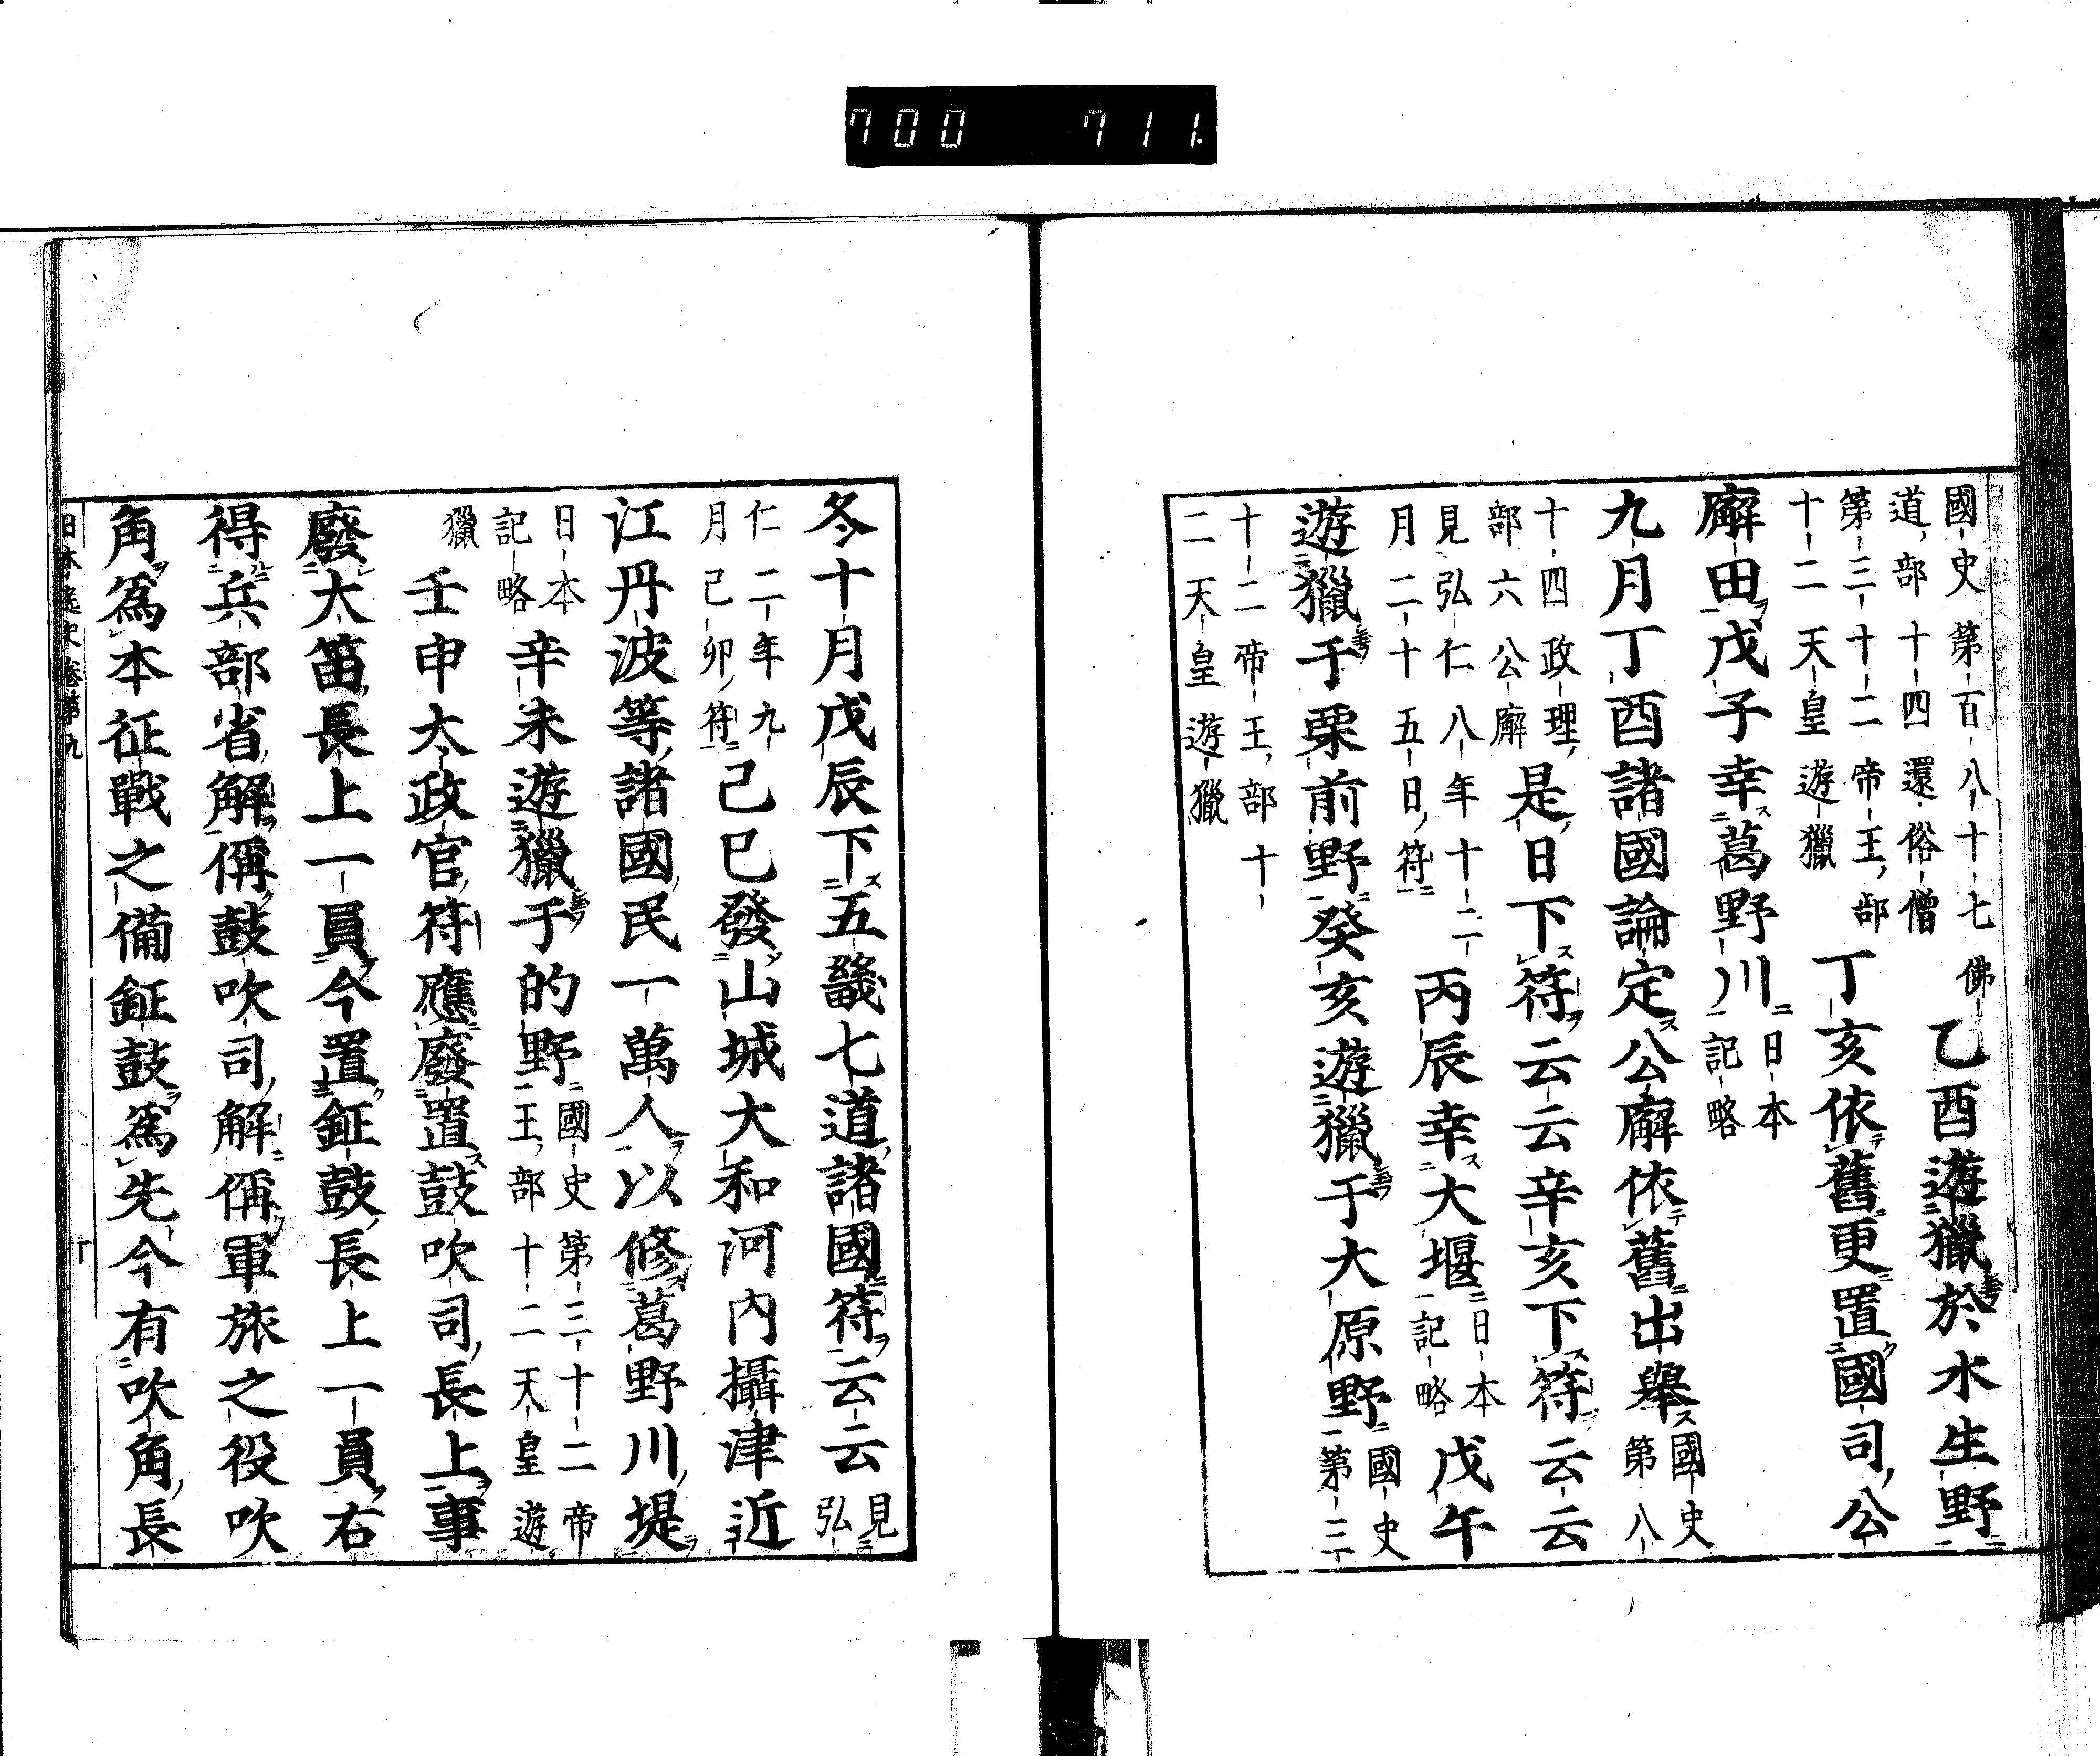 700 711.
國史第百八十七佛
道部十四還俗僧 乙酉遊獵於水生野
第三十二帝王部
十二天皇遊獵 丁亥依舊更置國司公
廨田戊子幸葛野川 日本
記略
九月丁酉諸國論定公廨依舊出擧 國史
第八
十四政理
部六公廨 是日下符云云辛亥下符云云
見弘仁八年十二
月二十五日符 丙辰幸大堰 日本
記略 戊午
遊獵于栗前野癸亥遊獵于大原野 國史
第三
十二帝王部十
二天皇遊獵
冬十月戊辰下五畿七道諸國符云云 見
弘
仁二年九
月己卯符 己巳發山城大和河内攝津近
江丹波等諸國民一萬人以修葛野川堤
日本
記略 辛未遊獵于的野 國史第三十二帝
王部十二天皇遊
獵 壬申太政官符應廢置鼓吹司長上事
廢大笛長上一員今置鉦鼓長上一員右
得兵部省解偁鼓吹司解偁軍旅之役吹
角爲本征戰之備鉦鼓爲先今有吹角長
日本逸史卷第九